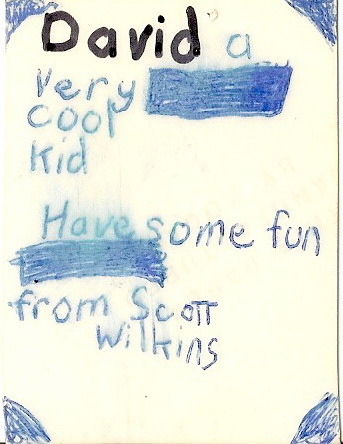 David a
very
cool
kid
Have some fun
from Scott
Wilkins